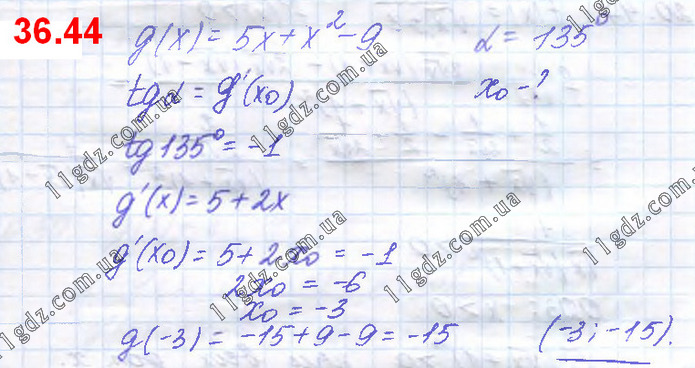 36.44
g(x) = 5x + x² - 9    α = 135°
tgα = g'(x₀)    x₀ - ?
tg 135° = -1
g'(x) = 5 + 2x
g'(x₀) = 5 + 2x₀ = -1
2x₀ = -6
x₀ = -3
g(-3) = -15 + 9 - 9 = -15    (-3; -15).
11gdz.com.ua
11gdz.com.ua
11gdz.com.ua
11gdz.com.ua
11gdz.com.ua
11gdz.com.ua